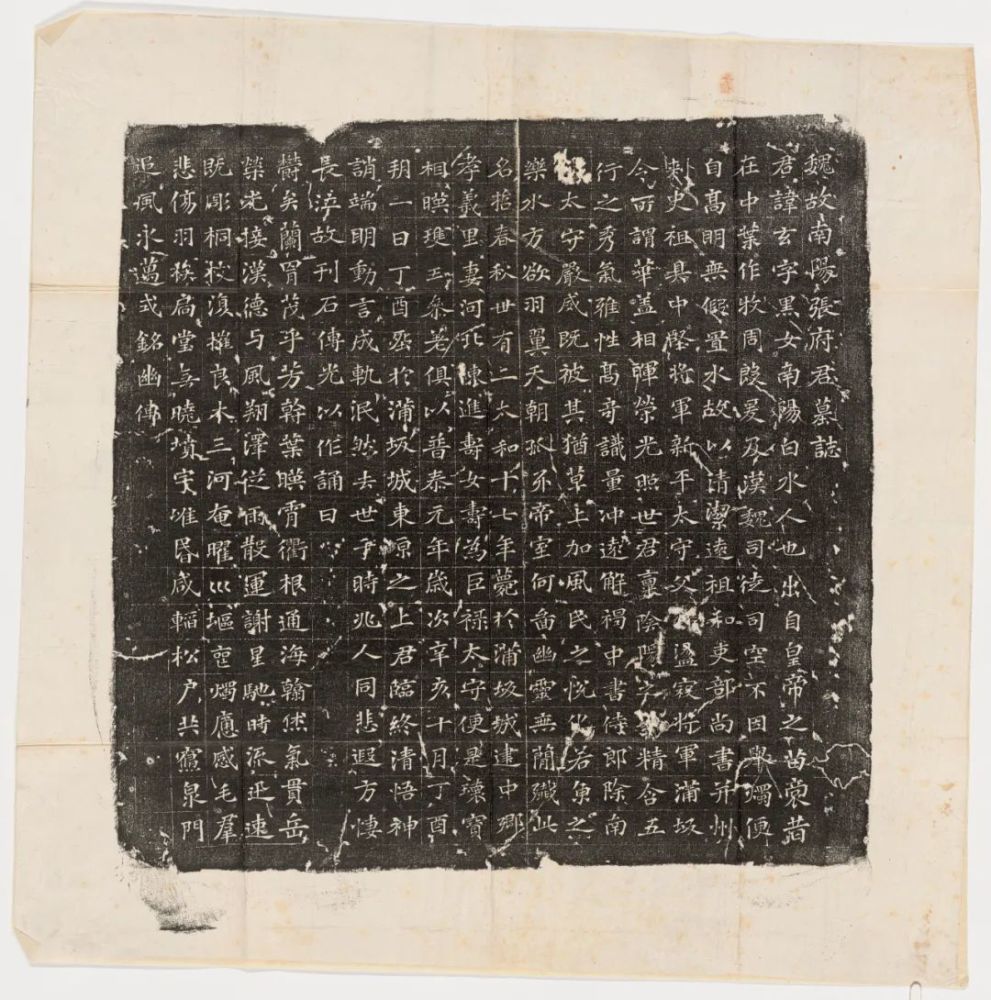 魏故南陽張府君墓誌
君諱玄字黑女南陽白水人也出自皇帝之苗裔昔
在中葉作牧周殷爰及漢魏司徒司空不因舉燭便
自高明無假置水故以清潔遠祖和吏部尚書并州
刺史祖具中堅將軍新平太守父盪寇將軍蒲坂
令所謂華蓋相暉榮光照世君稟陰陽之精含五
行之秀氣雅性高奇識量冲遠解褐中書侍郎除南
太守嚴威既被其猶草上加風民之悅化若魚之
樂水方欲羽翼天朝抓牙帝室何啚幽靈無簡殲此
名哲春秋世有二太和十七年薨於蒲坂城建中鄉
孝義里妻河北陳進壽女壽為巨祿太守便是瓌寶
相暎瓊玉參差俱以普泰元年歲次辛亥十月丁酉
朔一日丁酉丞於蒲坂城東原之上君臨終清悟神
誚端明動言成軌泯然去世于時兆人同悲遐方悽
長泣故刊石傳光以作誦曰
欝矣蘭胄茂乎芳幹葉暎霄衢根通海翰烋氣貫岳
榮光接漢德与風翔澤從雨散運謝星馳時流迅速
既彫桐枝復摧良木三河奄曜巛塸喪燭痛感毛羣
悲傷羽族扃堂無曉墳宇唯昏咸輼松戶共寢泉門
追風永邁式銘幽傳